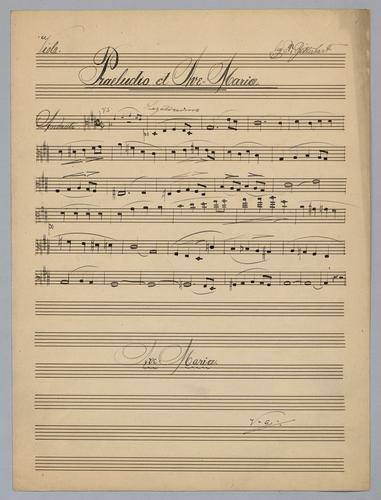 Viola.
Praeludio et Ave-Maria.
Andante
Legatissimo
Ave-Maria.